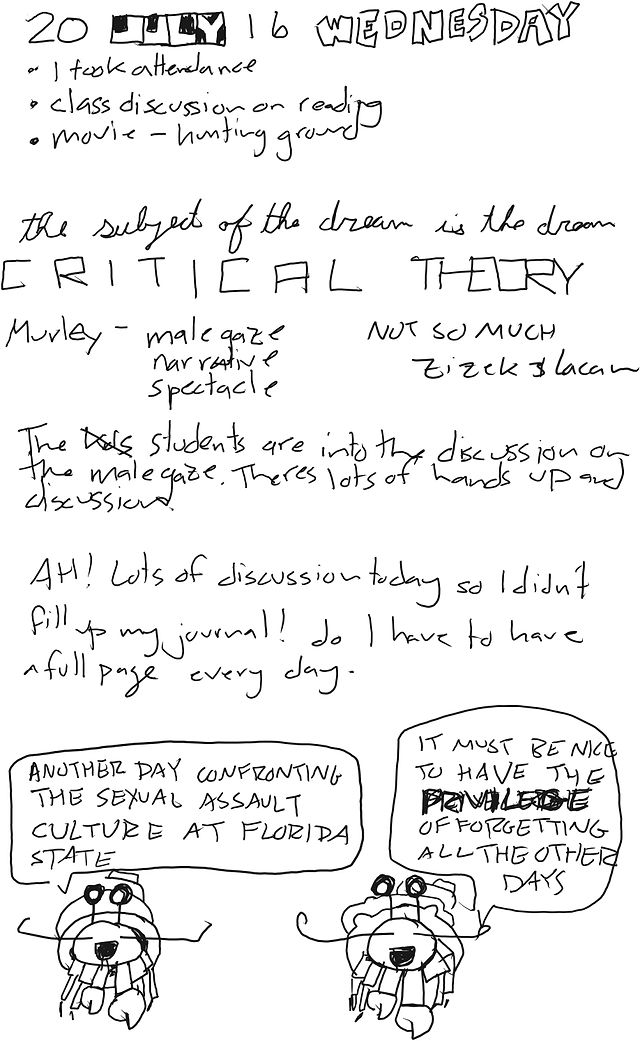 20 JULY 16 WEDNESDAY
• I took attendance
• class discussion on reading
• movie – hunting ground
the subject of the dream is the dream
CRITICAL THEORY
Murley – male gaze
narrative
spectacle
NOT SO MUCH
Zizek & Lacan
The students are into the discussion on
the male gaze. Theres lots of hands up and
discussion.
AH! Lots of discussion today so I didn't
fill up my journal! do I have to have
a full page every day.
ANOTHER DAY CONFRONTING
THE SEXUAL ASSAULT
CULTURE AT FLORIDA
STATE
IT MUST BE NICE
TO HAVE THE
PRIVILEGE
OF FORGETTING
ALL THE OTHER
DAYS